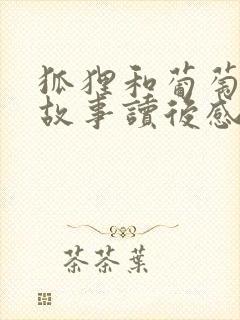 狐狸和葡萄
故事讀後感
茶茶葉